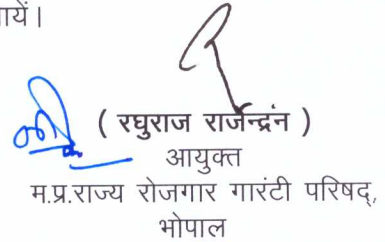 ायें।
( रघुराज राजेन्द्रंन )
आयुक्त
म.प्र.राज्य रोजगार गारंटी परिषद्,
भोपाल